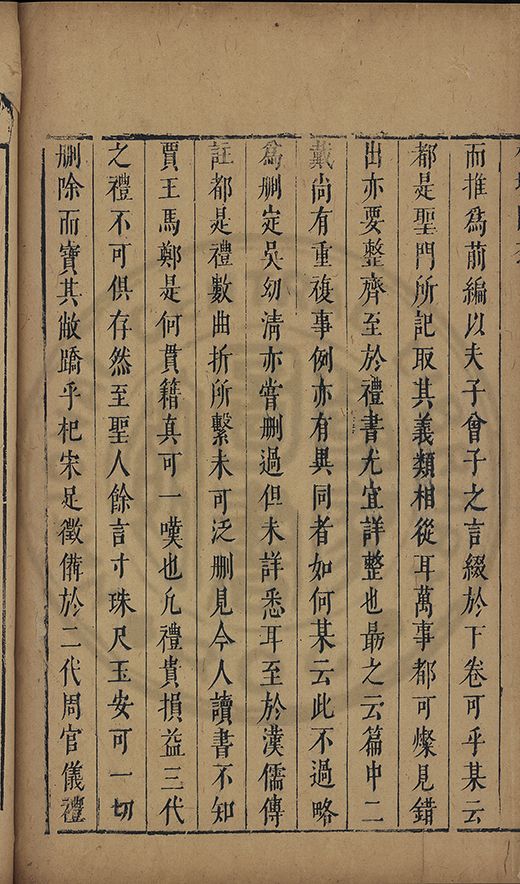 而推爲前編以夫子曾子之言綴於下卷可乎某云
都是聖門所記取其義類相從耳萬事都可燦見錯
出亦要整齊至於禮書尤宜詳整也勗之云篇中二
戴尚有重複事例亦有異同者如何某云此不過略
爲刪定吳幼清亦嘗刪過但未詳悉耳至於漢儒傳
註都是禮數曲折所繫未可泛刪見今人讀書不知
賈王馬鄭是何貫籍真可一嘆也凡禮貴損益三代
之禮不可俱存然至聖人餘言寸珠尺玉安可一切
刪除而寶其敝蹻乎杞宋足徵備於二代周官儀禮